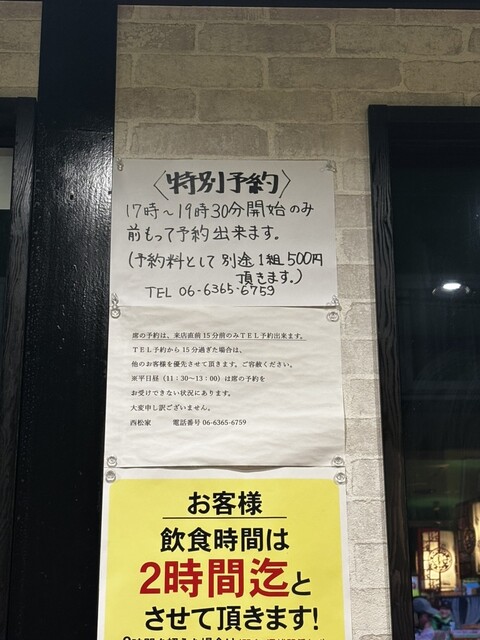 〈特別予約〉
17時～19時30分開始のみ
前もって予約出来ます。
(予約料として別途1組500円
頂きます。)
TEL 06-6365-6759
席の予約は、来店直前15分前のみTEL予約出来ます。
TEL予約から15分過ぎた場合は、
他のお客様を優先させて頂きます。ご容赦ください。
※平日昼（11：30～13：00）は席の予約を
お受けできない状況にあります。
大変申し訳ございません。
西松家 電話番号 06-6365-6759
お客様
飲食時間は
2時間迄と
させて頂きます!